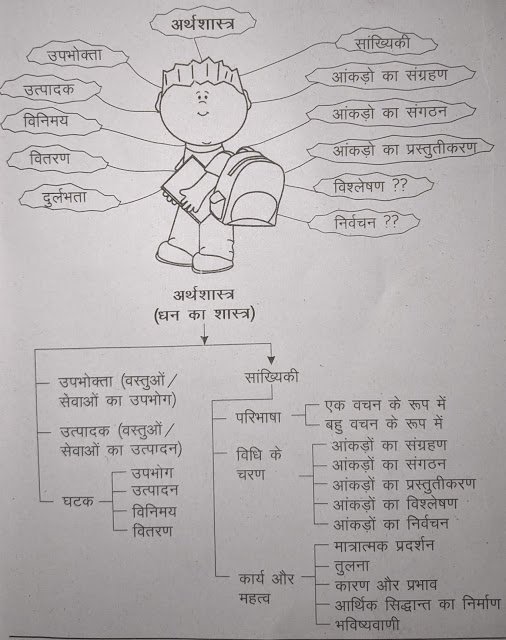 अर्थशास्त्र
उपभोक्ता
सांख्यिकी
उत्पादक
आंकड़ो का संग्रहण
विनिमय
आंकड़ो का संगठन
वितरण
आंकड़ो का प्रस्तुतीकरण
दुर्लभता
विश्लेषण ??
निर्वचन ??
अर्थशास्त्र
(धन का शास्त्र)
उपभोक्ता (वस्तुओं/
सेवाओं का उपभोग)
उत्पादक (वस्तुओं/
सेवाओं का उत्पादन)
घटक
उपभोग
उत्पादन
विनिमय
वितरण
सांख्यिकी
परिभाषा
एक वचन के रूप में
बहु वचन के रूप में
विधि के
चरण
आंकड़ों का संग्रहण
आंकड़ों का संगठन
आंकड़ों का प्रस्तुतीकरण
आंकड़ों का विश्लेषण
आंकड़ों का निर्वचन
कार्य और
महत्व
मात्रात्मक प्रदर्शन
तुलना
कारण और प्रभाव
आर्थिक सिद्धान्त का निर्माण
भविष्यवाणी